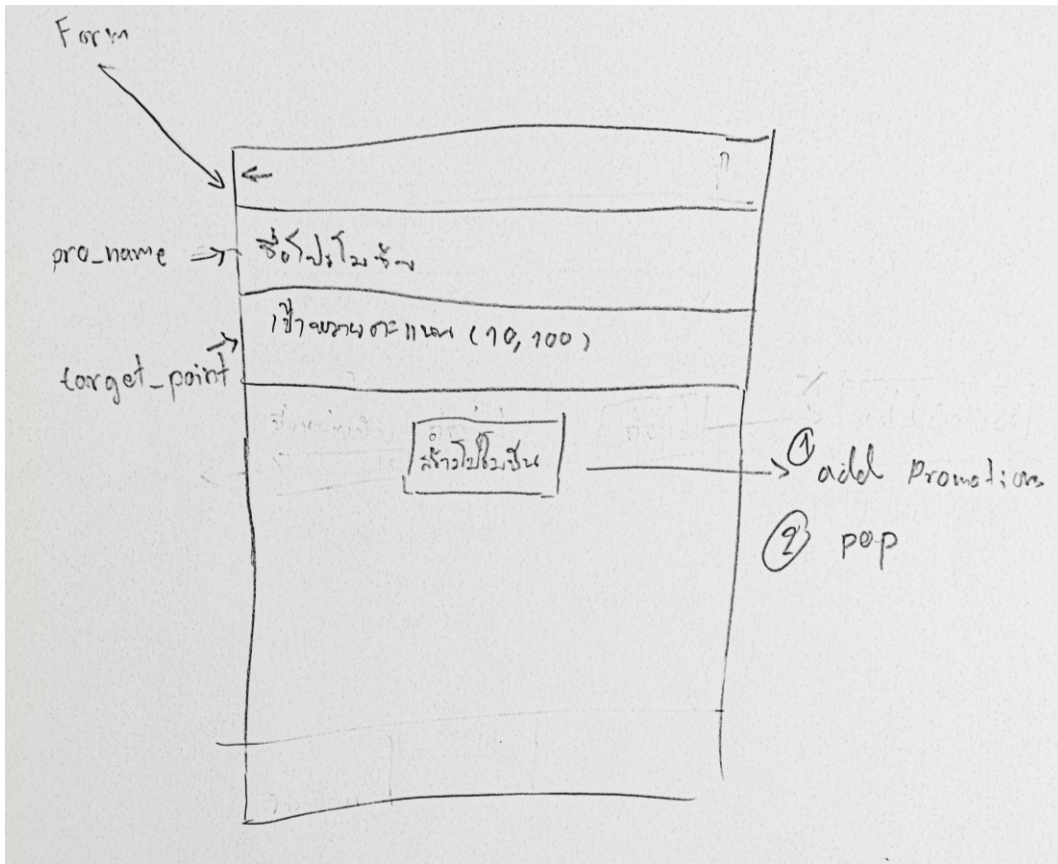 Form
←
pro_name
ชื่อโปรโมชัน
target_point
เป้าหมายคะแนน (10, 100)
สร้างโปรโมชัน
① add Promotions
② pop